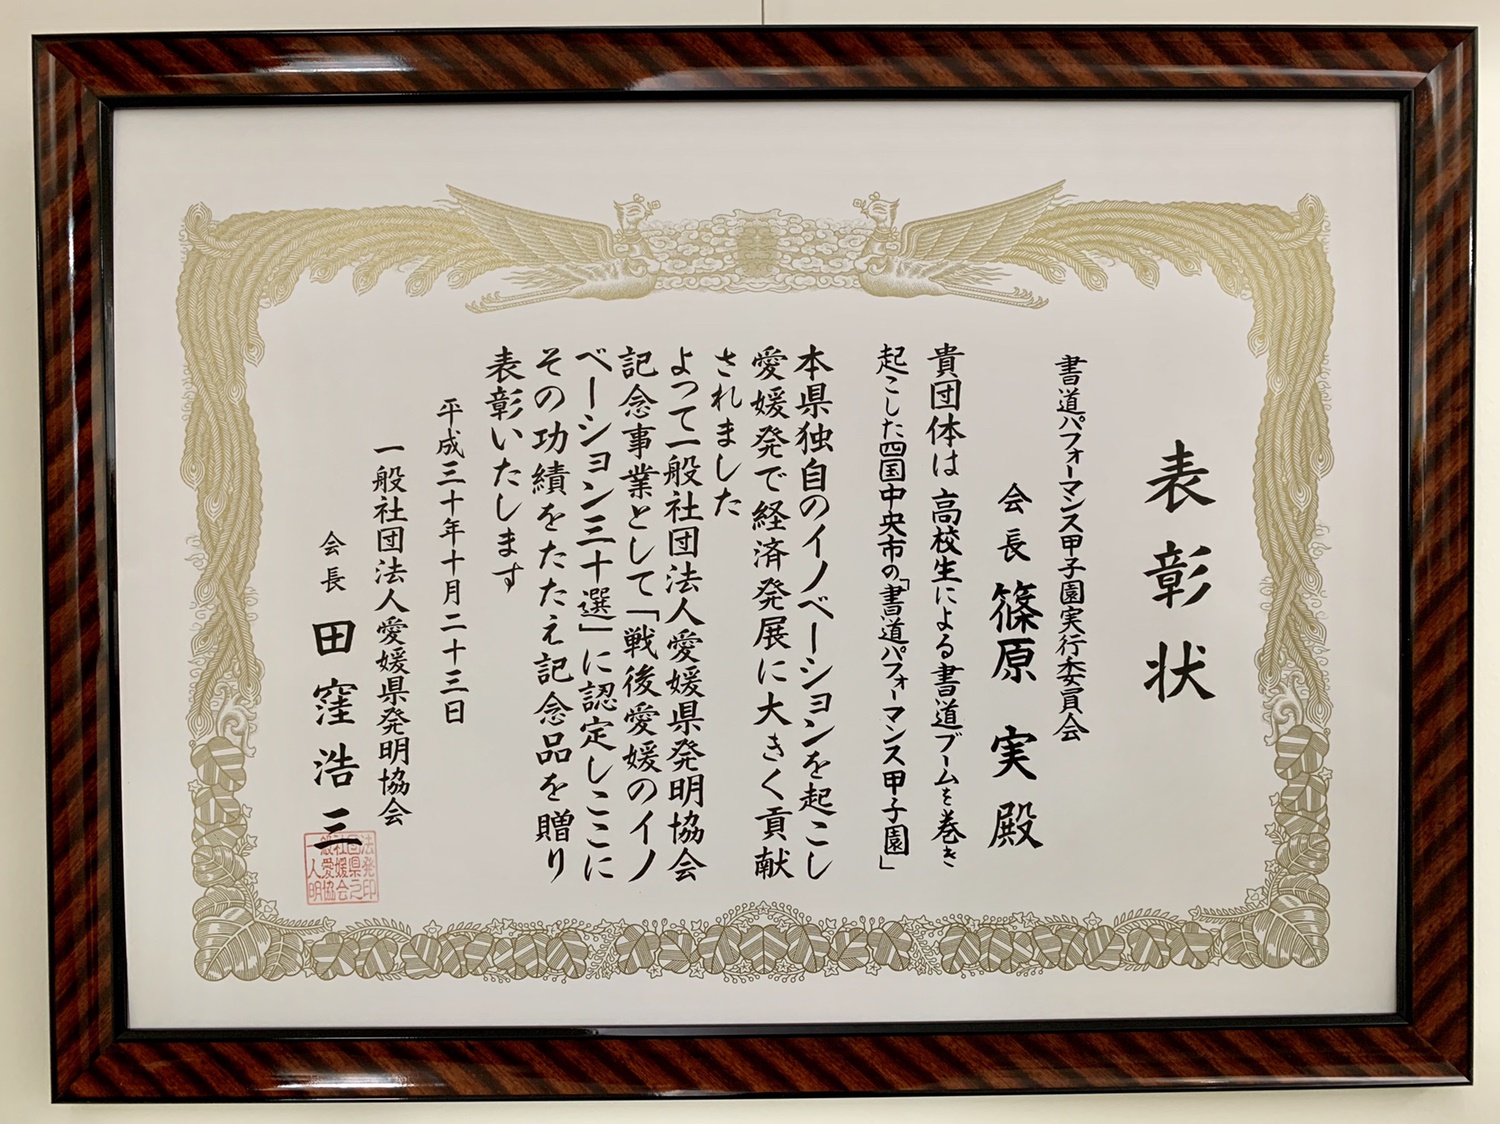 表彰状
書道パフォーマンス甲子園実行委員会
会長 篠原 実 殿
貴団体は 高校生による書道ブームを巻き
起こした四国中央市の「書道パフォーマンス甲子園」
本県独自のイノベーションを起こし
愛媛発で経済発展に大きく貢献
されました
よって一般社団法人愛媛県発明協会
記念事業として「戦後愛媛のイノ
ベーション三十選」に認定しここに
その功績をたたえ記念品を贈り
表彰いたします
平成三十年十月二十三日
一般社団法人愛媛県発明協会
会長 田窪浩三
一般社団法
人愛媛県発
明協会之印